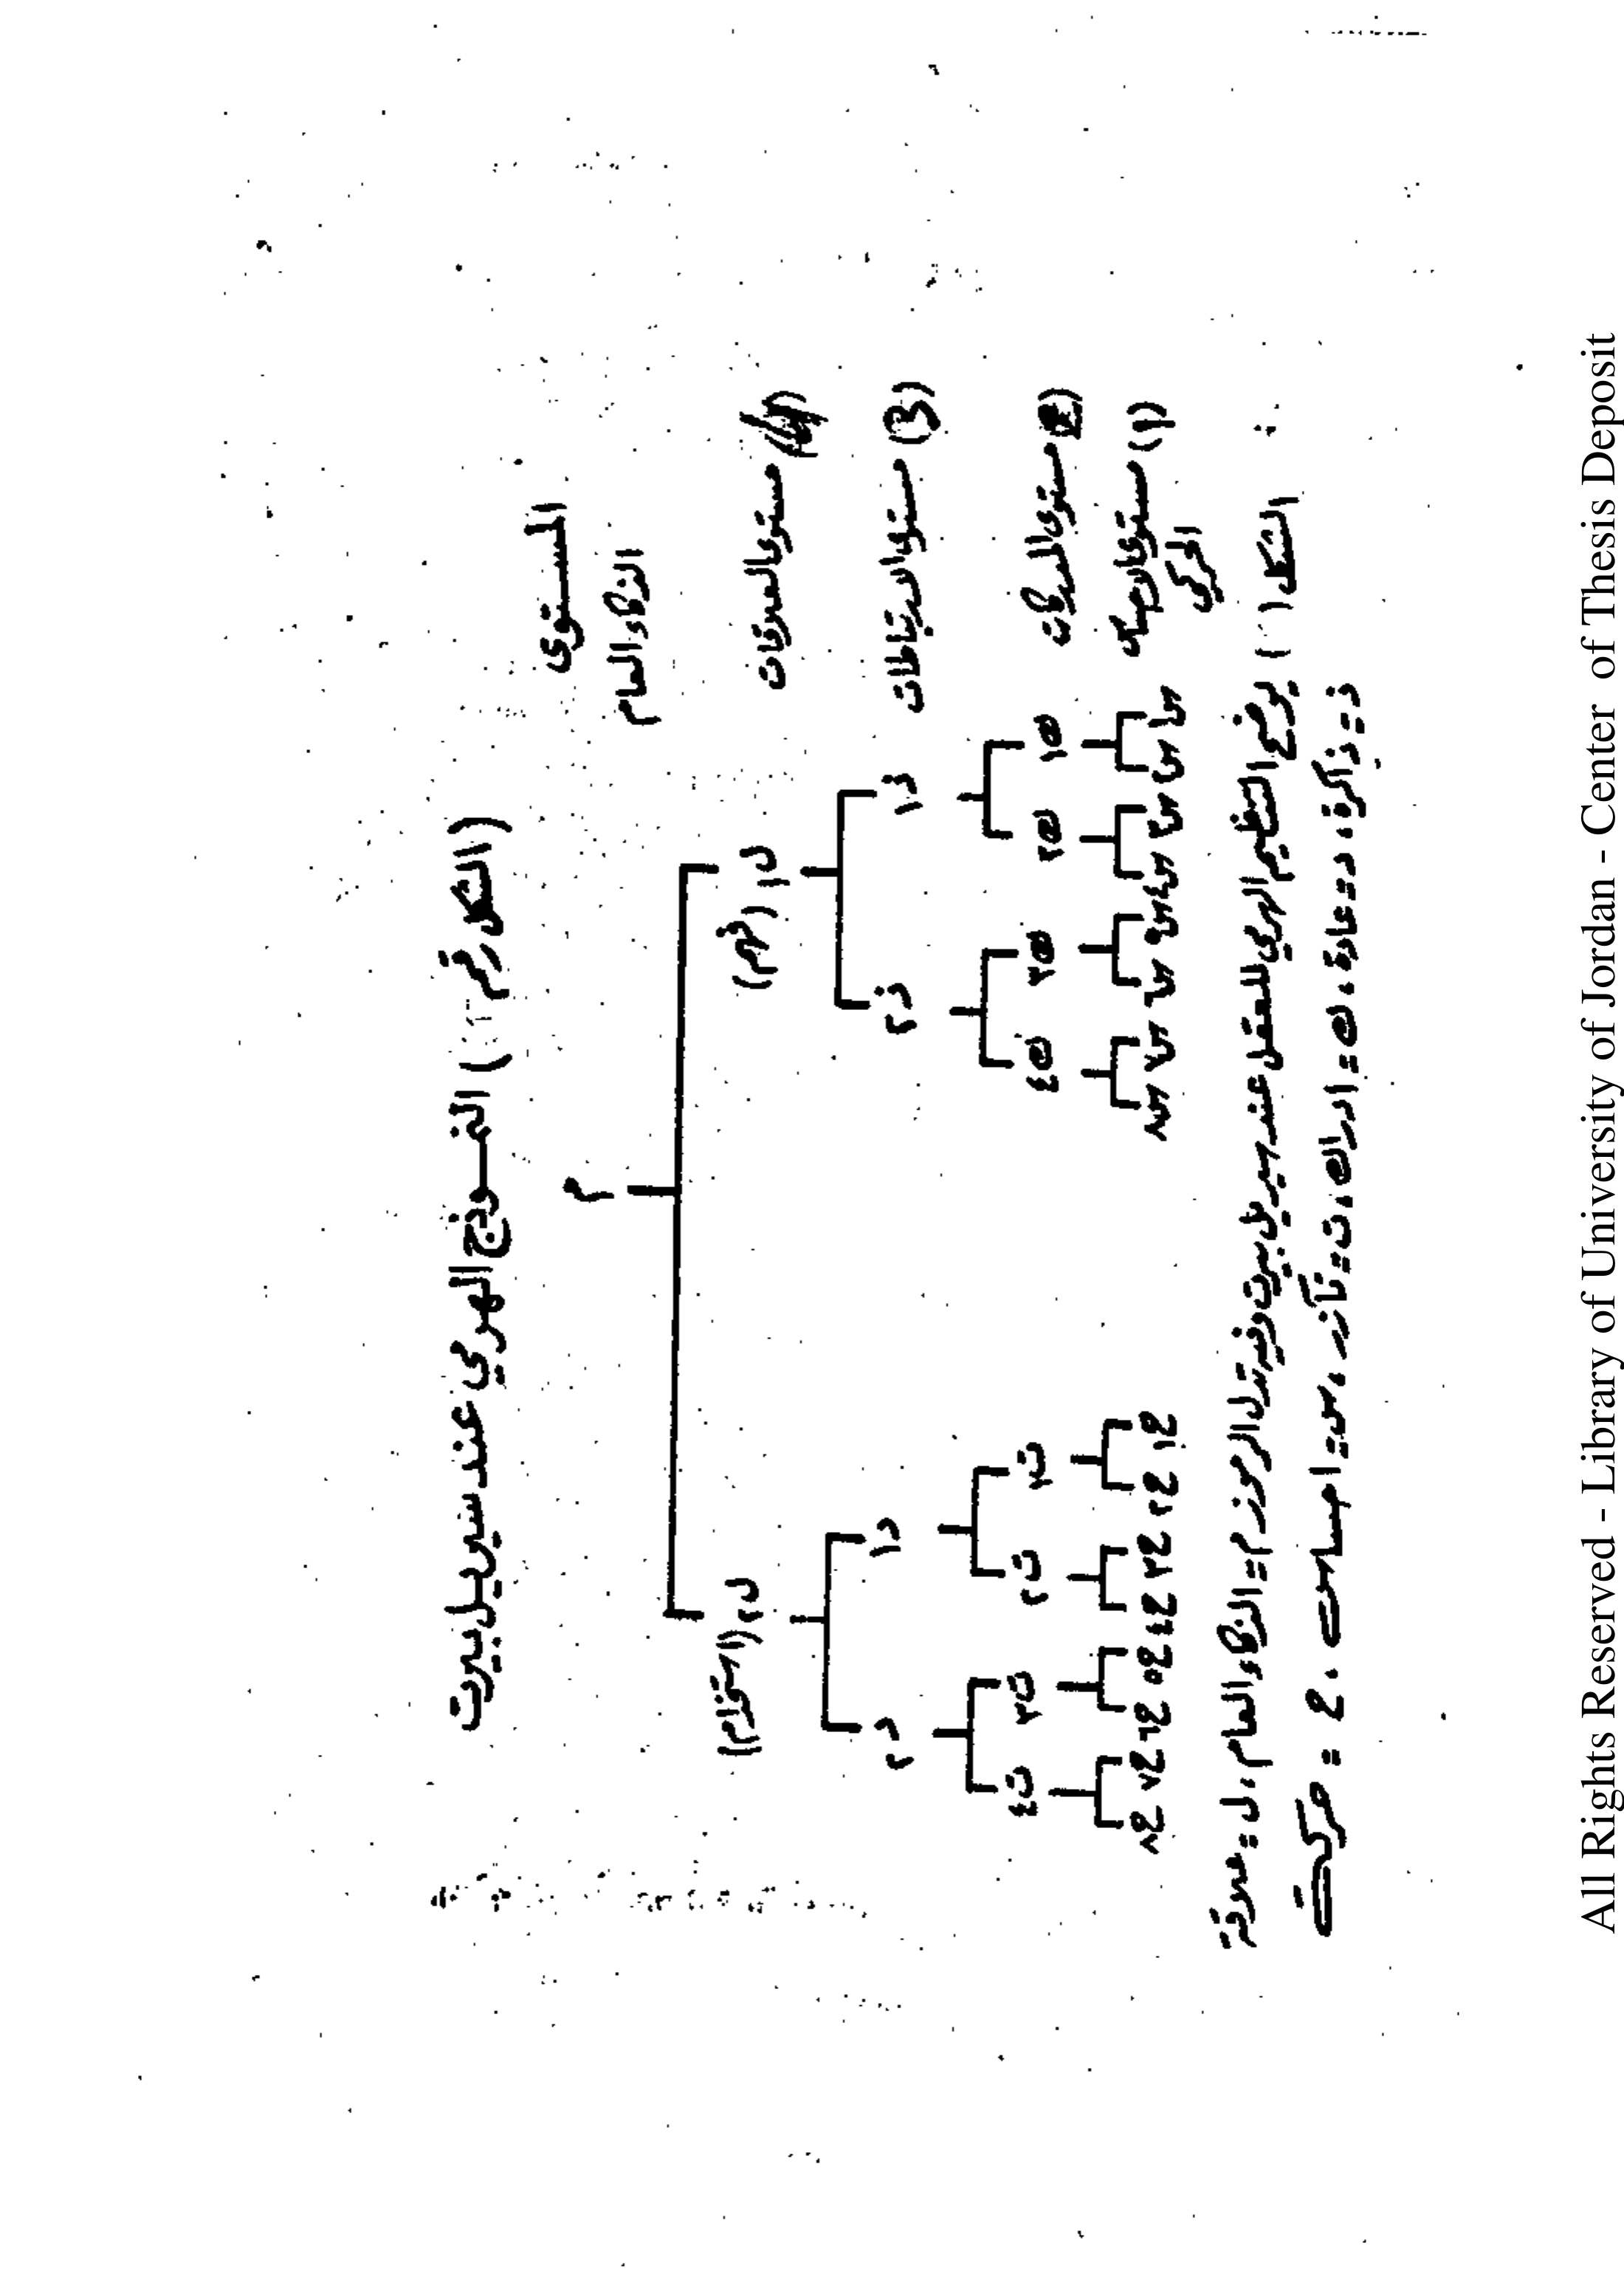 (الشكل رقم ( ) النموذج الهرمي عند سيريل بيرت
المستوى
م
الذكاء العام
ل١ (فهم) ل٢ (استخدام)
مستوى العلاقات
ذ١ ذ٢ د١ د٢
مستوى الارتباطات (3)
ك١ ك٢ ك٣ ك٤ ت١ ت٢ ت٣ ت٤
مستوى المدركات (2)
س١ س٢ س٣ س٤ س٥ س٦ س٧ س٨ ح١ ح٢ ح٣ ح٤ ح٥ ح٦ ح٧ ح٨
مستوى الاحساس (١)
الحركي
الشكل ( ) يوضح التنظيم الهرمي للعقل عند سيريل بيرت وفيه تدل الرموز م = الذكاء العام، ل = علاقة
ذ = ذاكرة، د = عادة، ك = ادراك، ت = تآزر، س = احساس، ح = حركة
All Rights Reserved - Library of University of Jordan - Center of Thesis Deposit